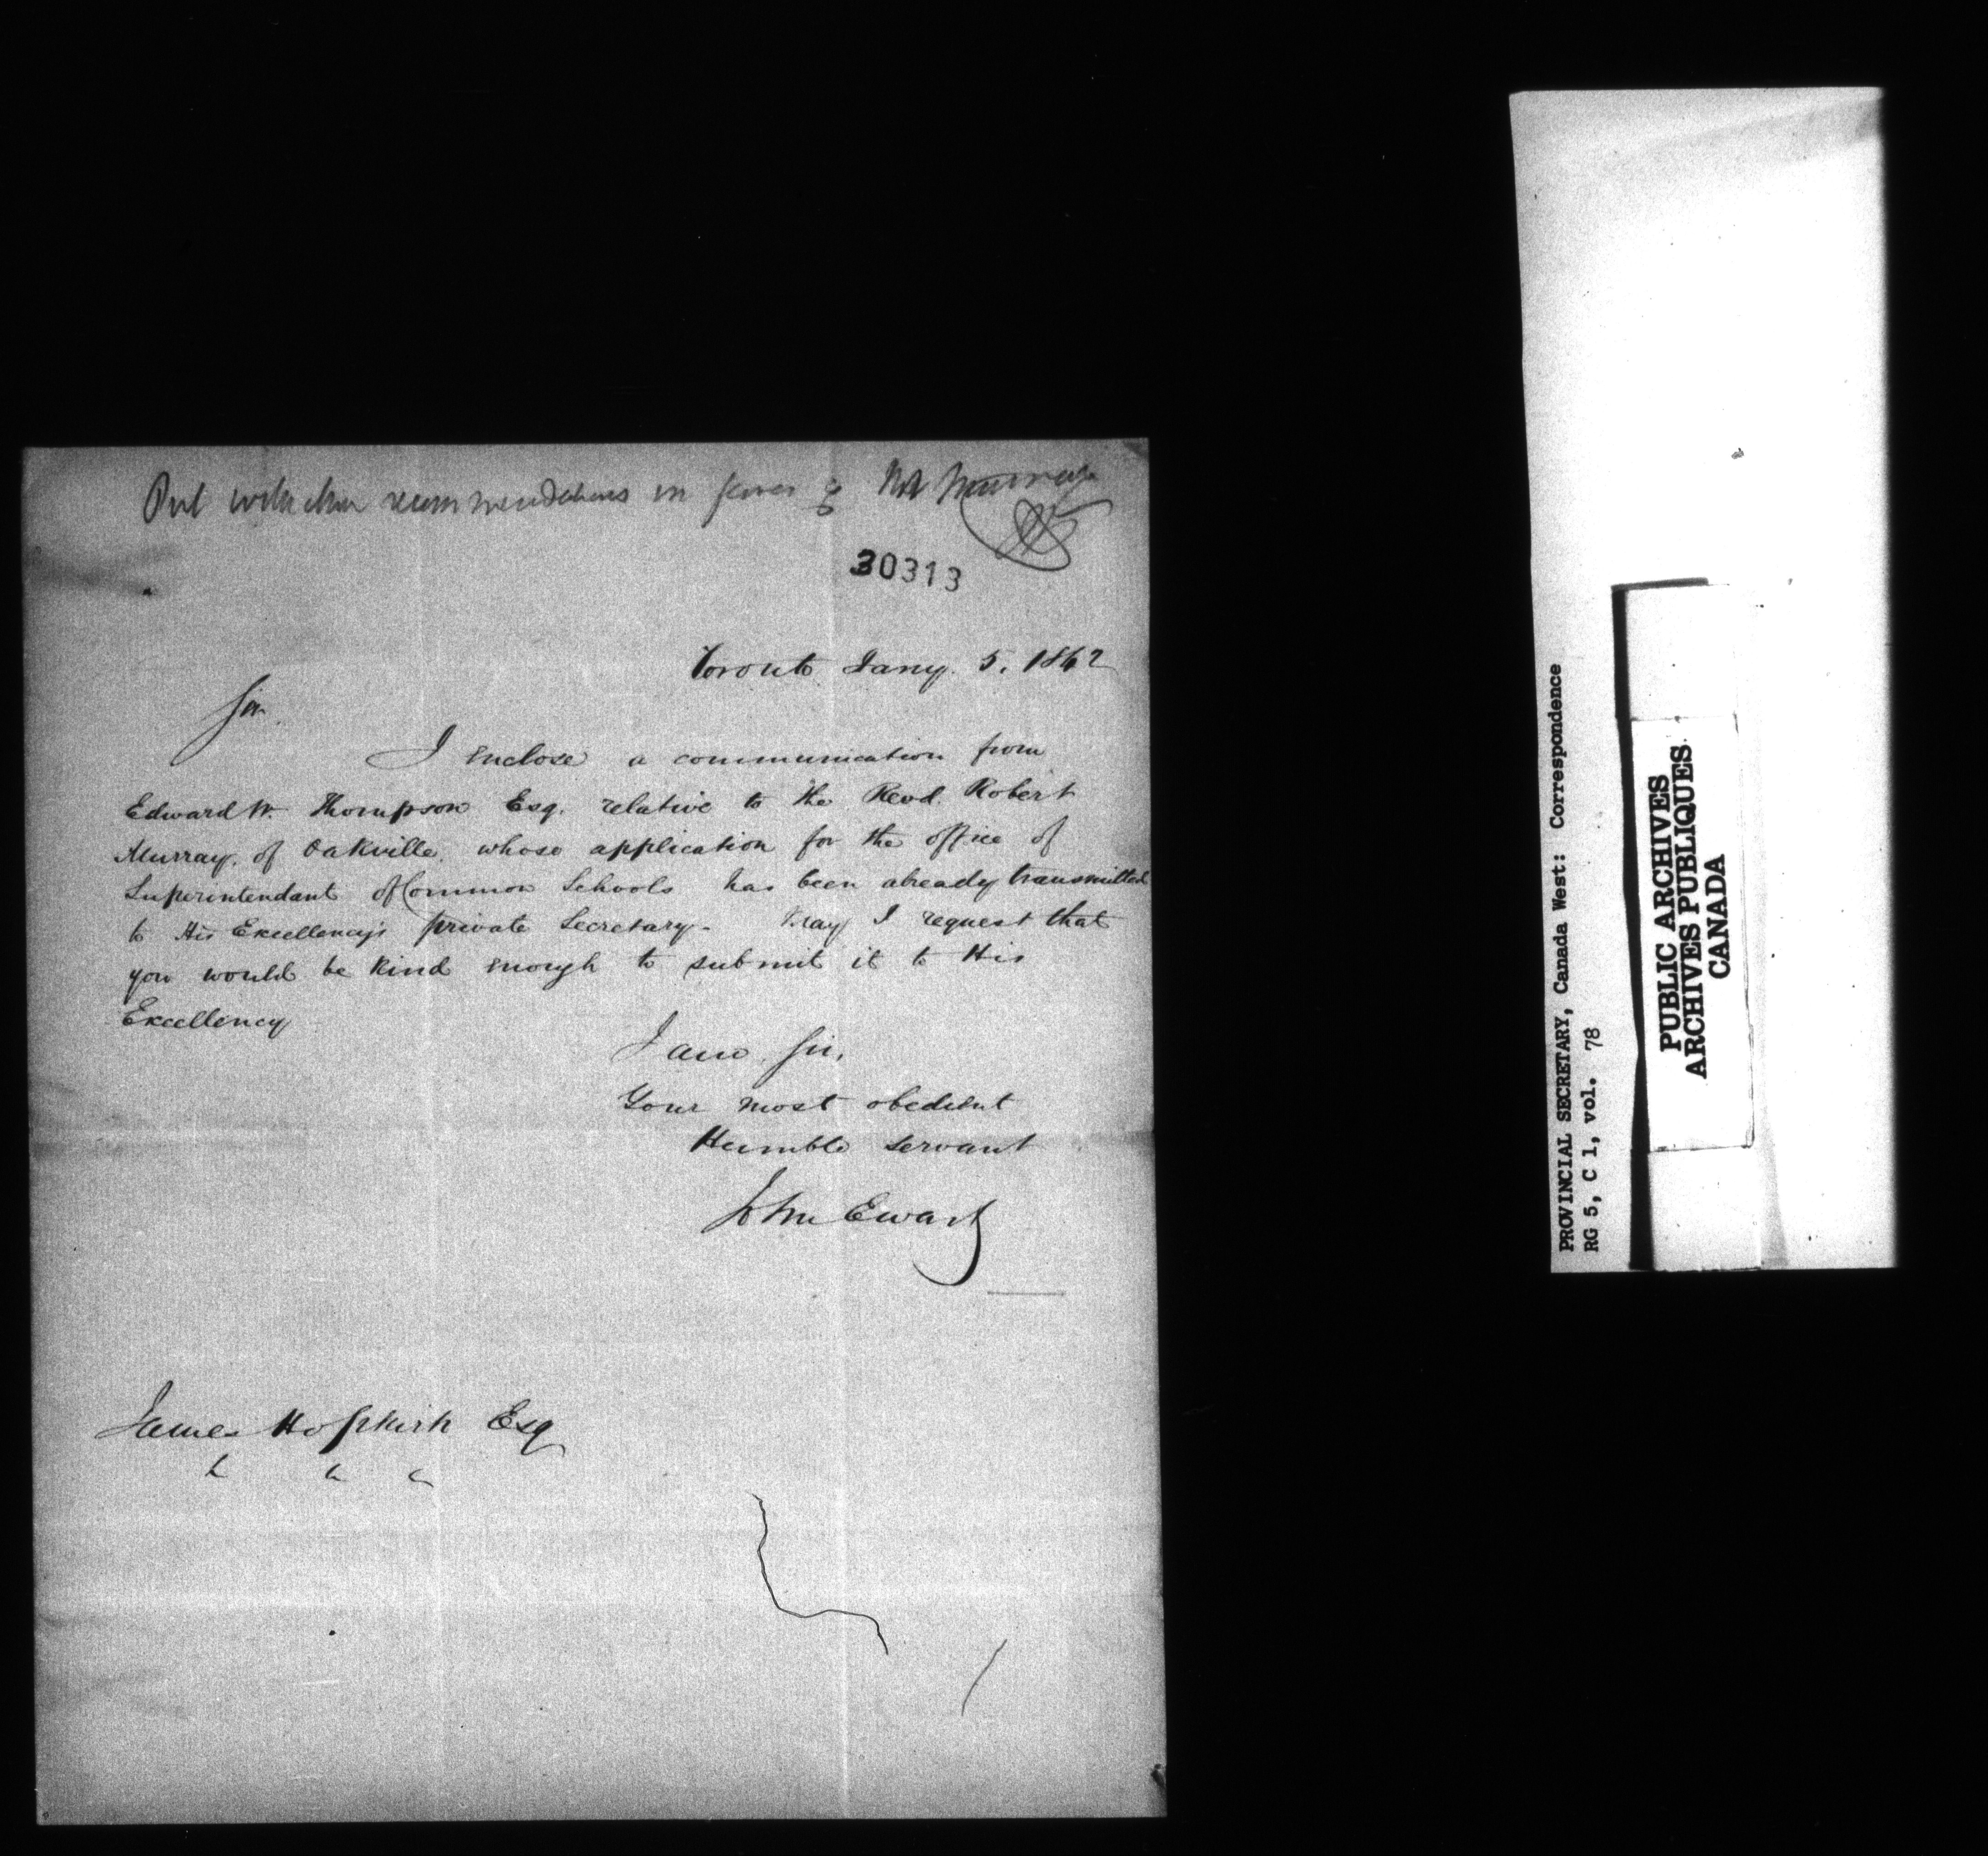 Put with other recommendations in favor of Mr Murray
30313
Toronto Jany. 5. 1842
Sir.
I enclose a communication from
Edward W. Thompson Esq. relative to the Revd. Robert
Murray, of Oakville, whose application for the office of
Superintendant of Common Schools has been already transmitted
to His Excellency's private Secretary - May I request that
you would be kind enough to submit it to His
Excellency
I am Sir,
Your most obedient
Humble servant
John Ewart
James Hopkirk Esq
PROVINCIAL SECRETARY, Canada West: Correspondence
RG 5, C 1, vol. 78
PUBLIC ARCHIVES
ARCHIVES PUBLIQUES
CANADA